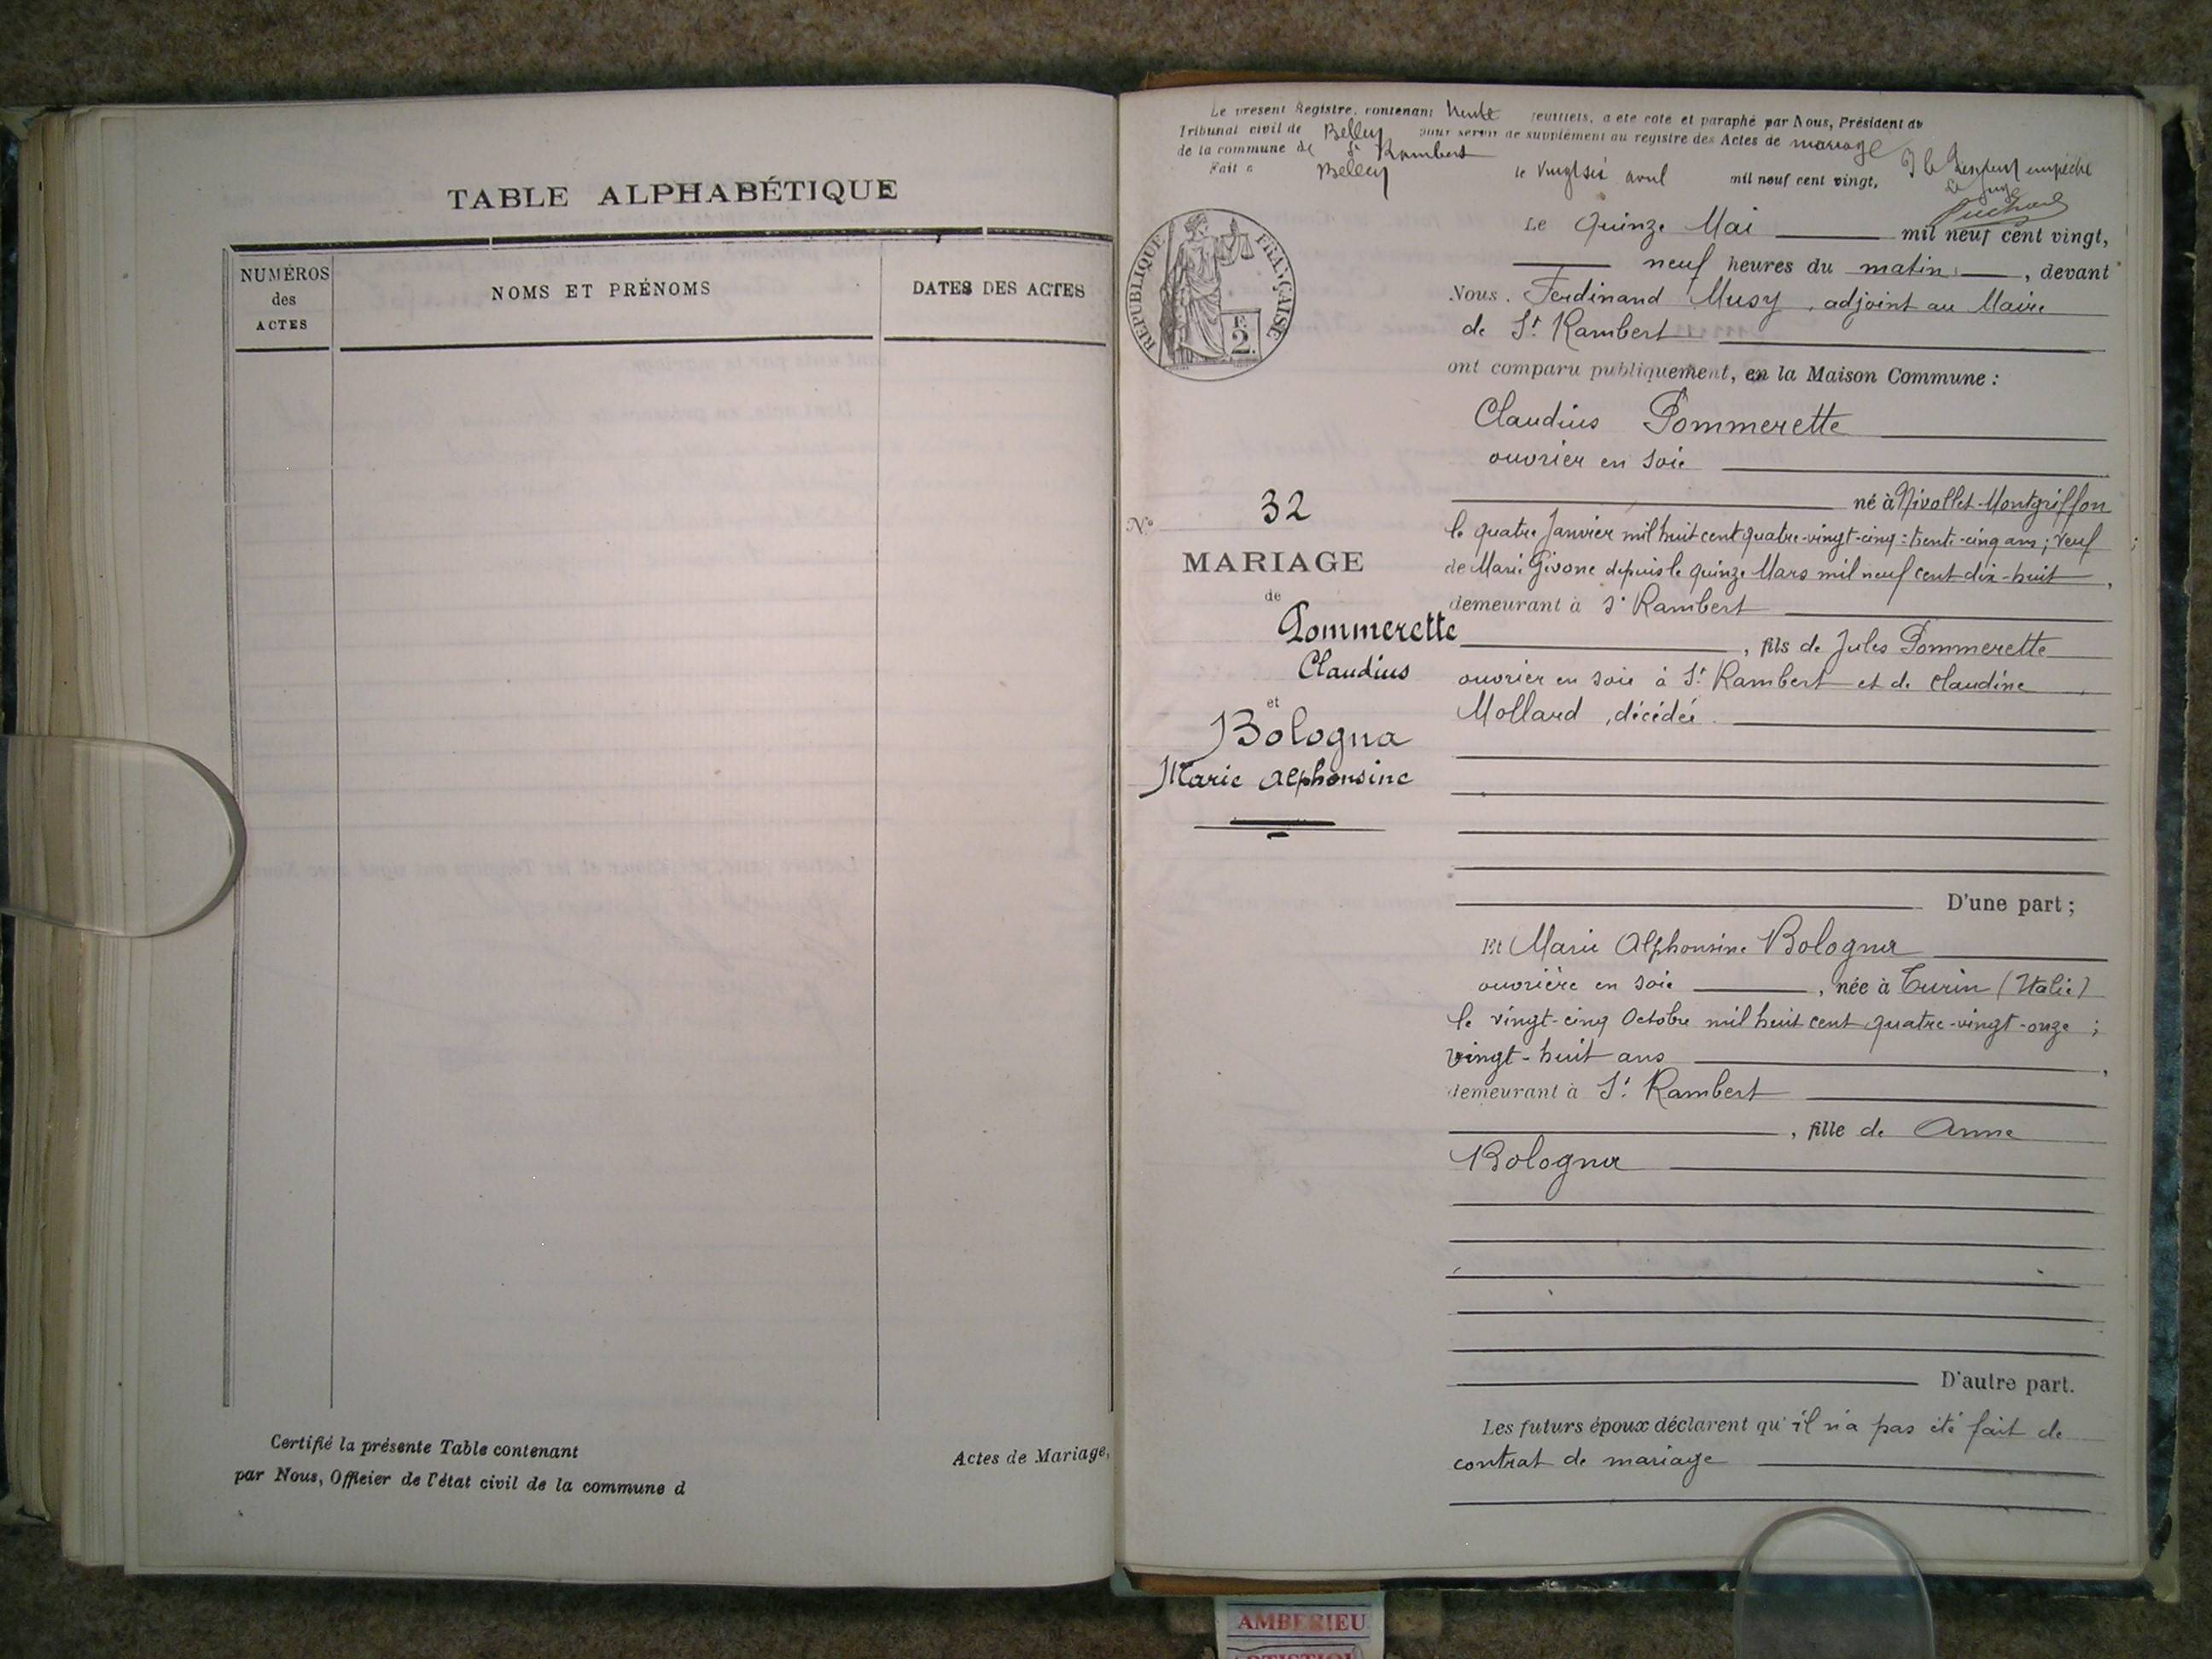 TABLE ALPHABÉTIQUE
NUMÉROS
des
ACTES
NOMS ET PRÉNOMS
DATES DES ACTES
Certifié la présente Table contenant
Actes de Mariage,
par Nous, Officier de l'état civil de la commune d
Le présent Registre, contenant trente feuillets, a été coté et paraphé par Nous, Président du
Tribunal civil de Belley pour servir de supplément au registre des Actes de mariage
de la commune de St Rambert
Fait à Belley le vingt six avril mil neuf cent vingt,
empêché
RÉPUBLIQUE FRANÇAISE
2
Le Quinze Mai mil neuf cent vingt,
neuf heures du matin, devant
Nous. Ferdinand Musy, adjoint au Maire
de St. Rambert
ont comparu publiquement, en la Maison Commune :
Claudius Pommerette
ouvrier en soie
né à Nivollet-Montgriffon
le quatre Janvier mil huit cent quatre-vingt-cinq : trente-cinq ans ; veuf ;
de Marie Givone depuis le quinze Mars mil neuf cent dix-huit,
demeurant à St Rambert
, fils de Jules Pommerette
ouvrier en soie à St. Rambert et de Claudine
Mollard, décédée.
D'une part ;
No 32
MARIAGE
de
Pommerette
Claudius
et
Bologna
Marie Alphonsine
Et Marie Alphonsine Bologna
ouvrière en soie, née à Turin (Italie)
le vingt-cinq Octobre mil huit cent quatre-vingt-onze ;
vingt-huit ans,
demeurant à St. Rambert
, fille de Anne
Bologna
D'autre part.
Les futurs époux déclarent qu'il n'a pas été fait de
contrat de mariage
AMBERIEU